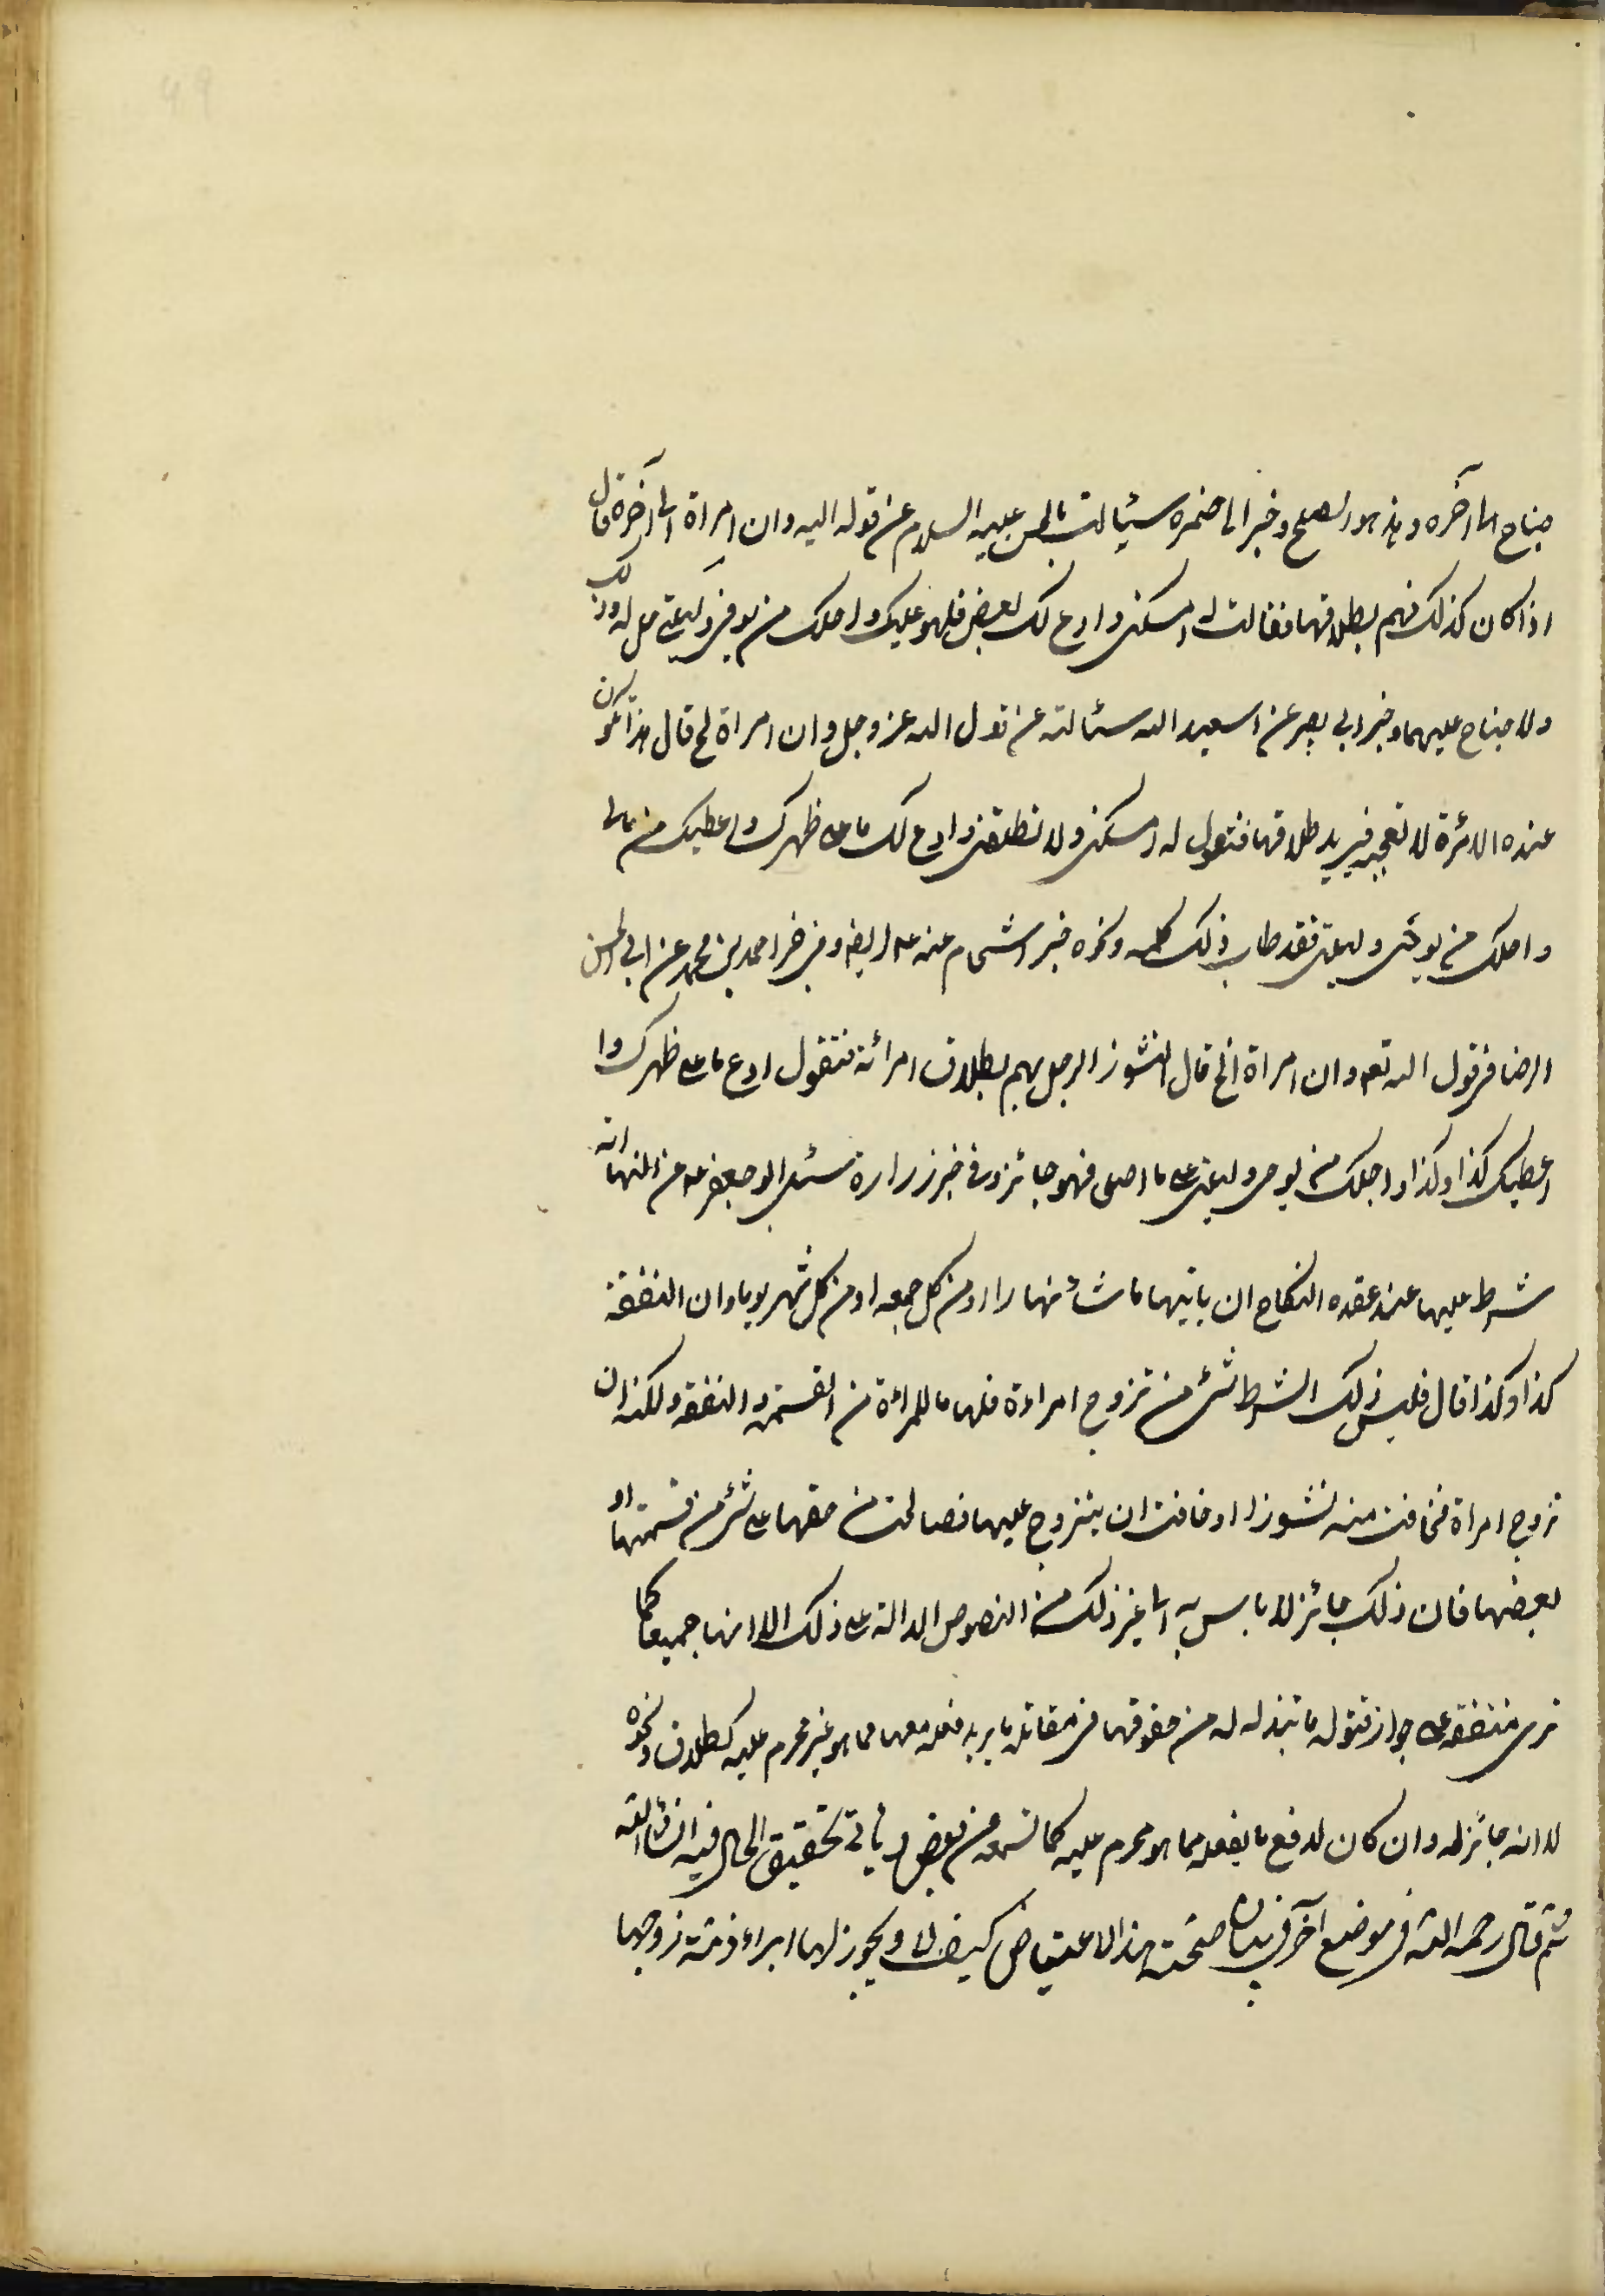 جناح الى آخره وهذا هو الصلح وخبر ابي حمزه سئالت ابا الحسن عليه السلام عن قوله اليه وان امراة الى آخره قال
اذا كان كذلك فهم بطلاقها فقالت له امسكني وادع لك بعض فلهو عليك واحلك من يومي وليلتي حل له ذلك
ولا جناح عليهما وخبر ابي بصير عن ابيعبد الله سئالته عن قول الله عز وجل وان امراة الخ قال هذا تكون
عنده الامرئة لا تعجبه فيريد طلاقها فتقول له امسكني ولا تطلقني وادع لك ما على ظهرك واعطيك من مالي
واحلك من يومي وليلتي فقد طاب ذلك كله ونحوه خبر الشحام عنه ع ايضا وفي خبر احمد بن محمد عن ابي الحسن
الرضا في قول الله تعه وان امراة الخ قال النشوز الرجل يهم بطلاق امرائة فتقول ادع ما على ظهرك وا
اعطيك كذا وكذا واحلك من يومي وليلتي على ما اصطلحا فهو جائز وفي خبر زرارة سئل ابو جعفر ع عن النهارية
شرط عليها عند عقده النكاح ان ياتيها ما شاء نهارا او من كل جمعه او من كل شهر يوما وان النفقة
كذا وكذا قال فليس ذلك الشرط شئ من تزوج امراءة فلها ما للمراة من القسمة والنفقة ولكنه ان
تزوج امراة فخافت منه نشوزا او خافت ان يتزوج عليها فصالحت من حقها على شئ من قسمتها او
بعضها فان ذلك جائز لا باس به الى غير ذلك من النصوص الدالة على ذلك الا انها جميعا كما
ترى متفقة على جواز قبول ما تبذله له من حقوقها في مقابلة ما يريد فعله معها مما هو غير محرم عليه كطلاق ونحوه
لا انه جائز له وان كان لدفع ما يفعله مما هو محرم عليه كما تسمعه من بعض وياتي تحقيق الحال فيه انشا الله
ثم قال رحمه الله في موضع آخر في بيان صحة هذا الاعتياض كيف لا ويجوز لها ابراء ذمة زوجها